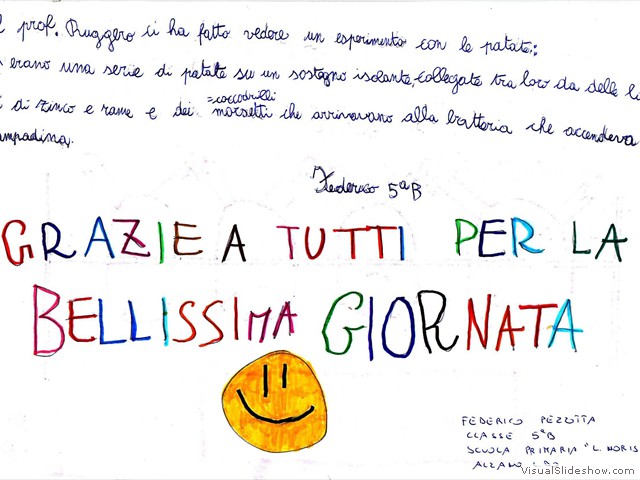 prof. Ruggero ci ha fatto vedere un esperimento con le patate:
erano una serie di patate su un sostegno isolante, collegate tra loro da delle
di zinco e rame e dei morsetti che arrivavano alla batteria che accendeva
=coccodrilli
Federico 5ªB
GRAZIE A TUTTI PER LA
BELLISSIMA GIORNATA
FEDERICO PEZZOTTA
CLASSE 5ªB
SCUOLA PRIMARIA "L. NORIS
ALZANO
VisualSlideshow.com